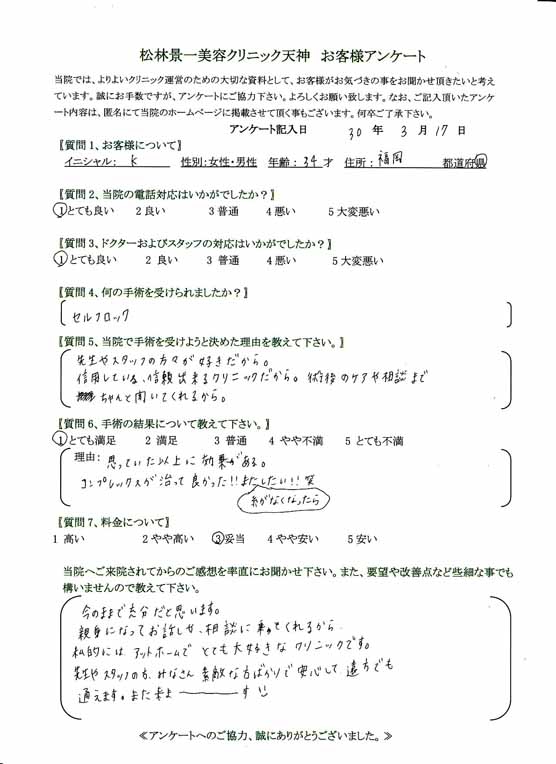 松林景一美容クリニック天神 お客様アンケート
当院では、よりよいクリニック運営のための大切な資料として、お客様がお気づきの事をお聞かせ頂きたいと考え
ています。誠にお手数ですが、アンケートにご協力下さい。よろしくお願い致します。なお、ご記入頂いたアンケ
ート内容は、匿名にて当院のホームページに掲載させて頂く事もございます。何卒ご了承下さい。
アンケート記入日 30 年 3 月 17 日
〖質問1、お客様について〗
イニシャル: K 性別:女性・男性 年齢:34才 住所:福岡 都道府県
〖質問2、当院の電話対応はいかがでしたか?〗
1とても良い 2良い 3普通 4悪い 5大変悪い
〖質問3、ドクターおよびスタッフの対応はいかがでしたか?〗
1とても良い 2良い 3普通 4悪い 5大変悪い
〖質問4、何の手術を受けられましたか?〗
セルフロック
〖質問5、当院で手術を受けようと決めた理由を教えて下さい。〗
先生やスタッフの方々が好きだから。
信用している、信頼出来るクリニックだから。術後のケアや相談まで
ちゃんと聞いてくれるから。
〖質問6、手術の結果について教えて下さい。〗
1とても満足 2満足 3普通 4やや不満 5とても不満
理由: 思っていた以上に効果がある。
コンプレックスが治って良かった!!またしたい!!笑
糸がなくなったら
〖質問7、料金について〗
1高い 2やや高い 3妥当 4やや安い 5安い
当院へご来院されてからのご感想を率直にお聞かせ下さい。また、要望や改善点など些細な事でも
構いませんので教えて下さい。
今のままで充分だと思います。
親身になってお話しや、相談に乗ってくれるから
私的にはアットホームでとても大好きなクリニックです。
先生やスタッフの方、みなさん素敵な方ばかりで安心して遠方でも
通えます。また来まーーーす!!
≪アンケートへのご協力、誠にありがとうございました。≫